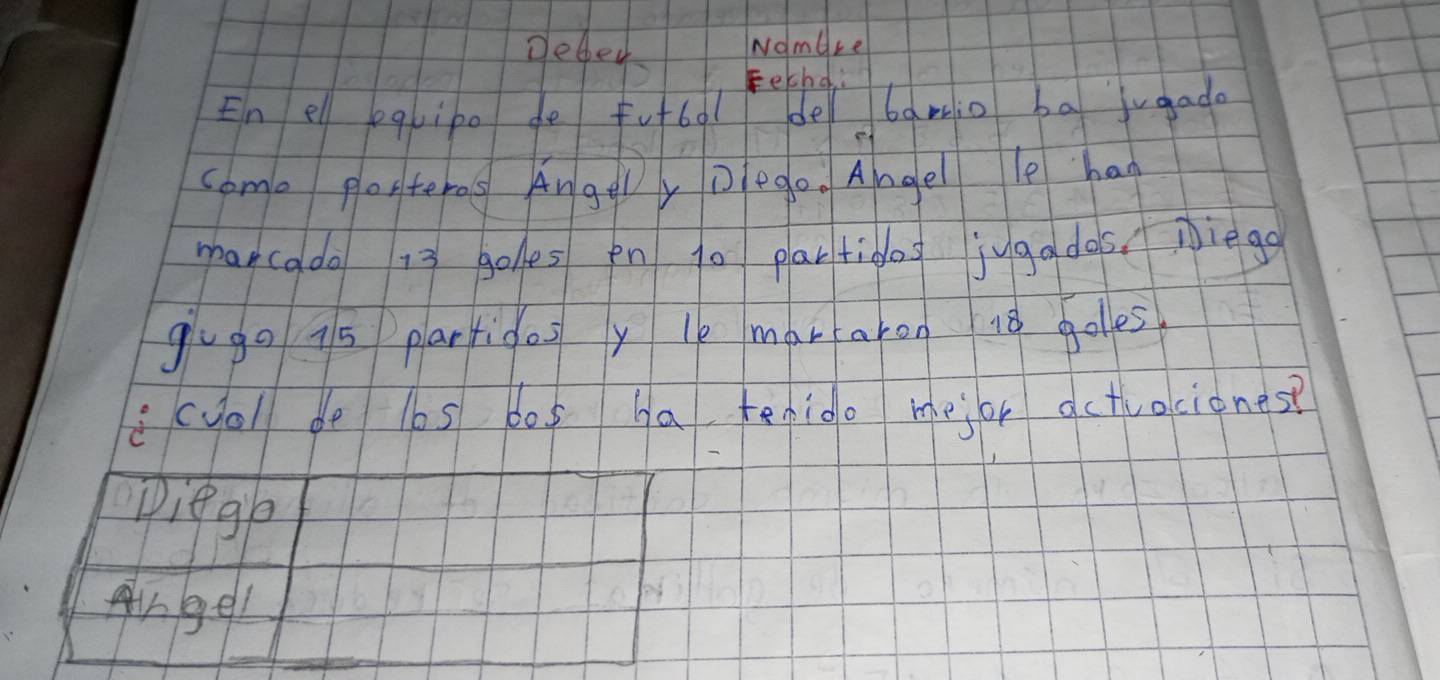 Deber Nombre
Fecha:
En el equipo de Futbol del barrio ha jugado
como porteros Ángel y Diego. Angel le han
marcado 13 goles en 10 partidos jugados. Diego
gugo 15 partidos y le marcaron 18 goles.
¿cual de los dos ha tenido mejor actuaciones?
Diego
Angel